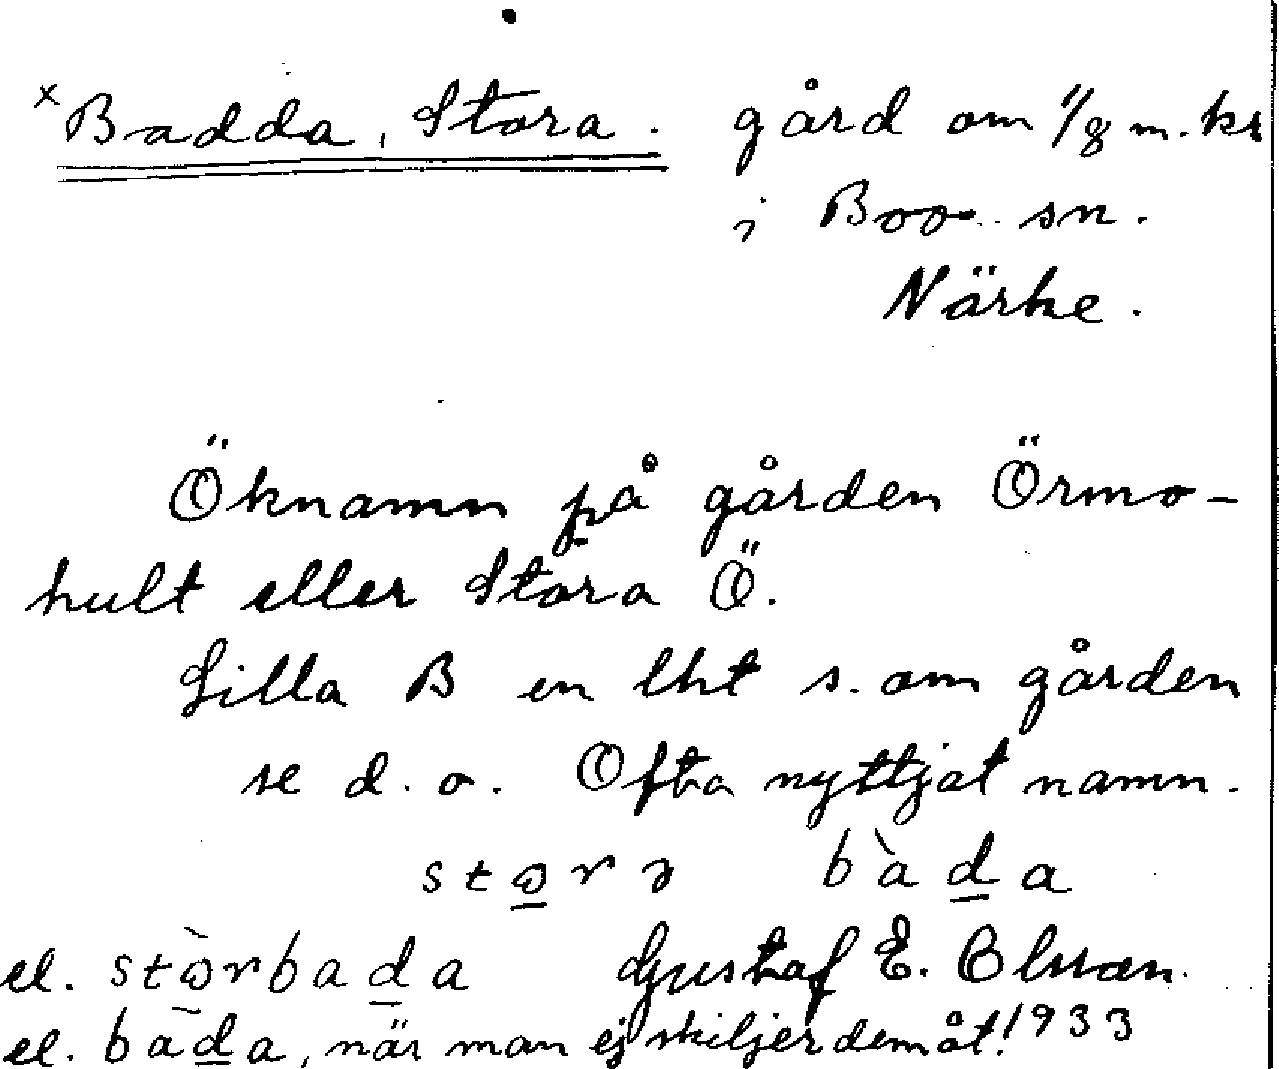 × Badda, Stora. gård om 1/8 m. kr
i Boo sn.
Närke.
Öknamn på gården Örmo-
hult eller Stora Ö.
Lilla B en lht s. om gården
se d. o. Ofta nyttjat namn.
storə bàda
el. stòrbada Gustaf E. Olsson.
el. bàda, när man ej skiljer dem åt! 1933